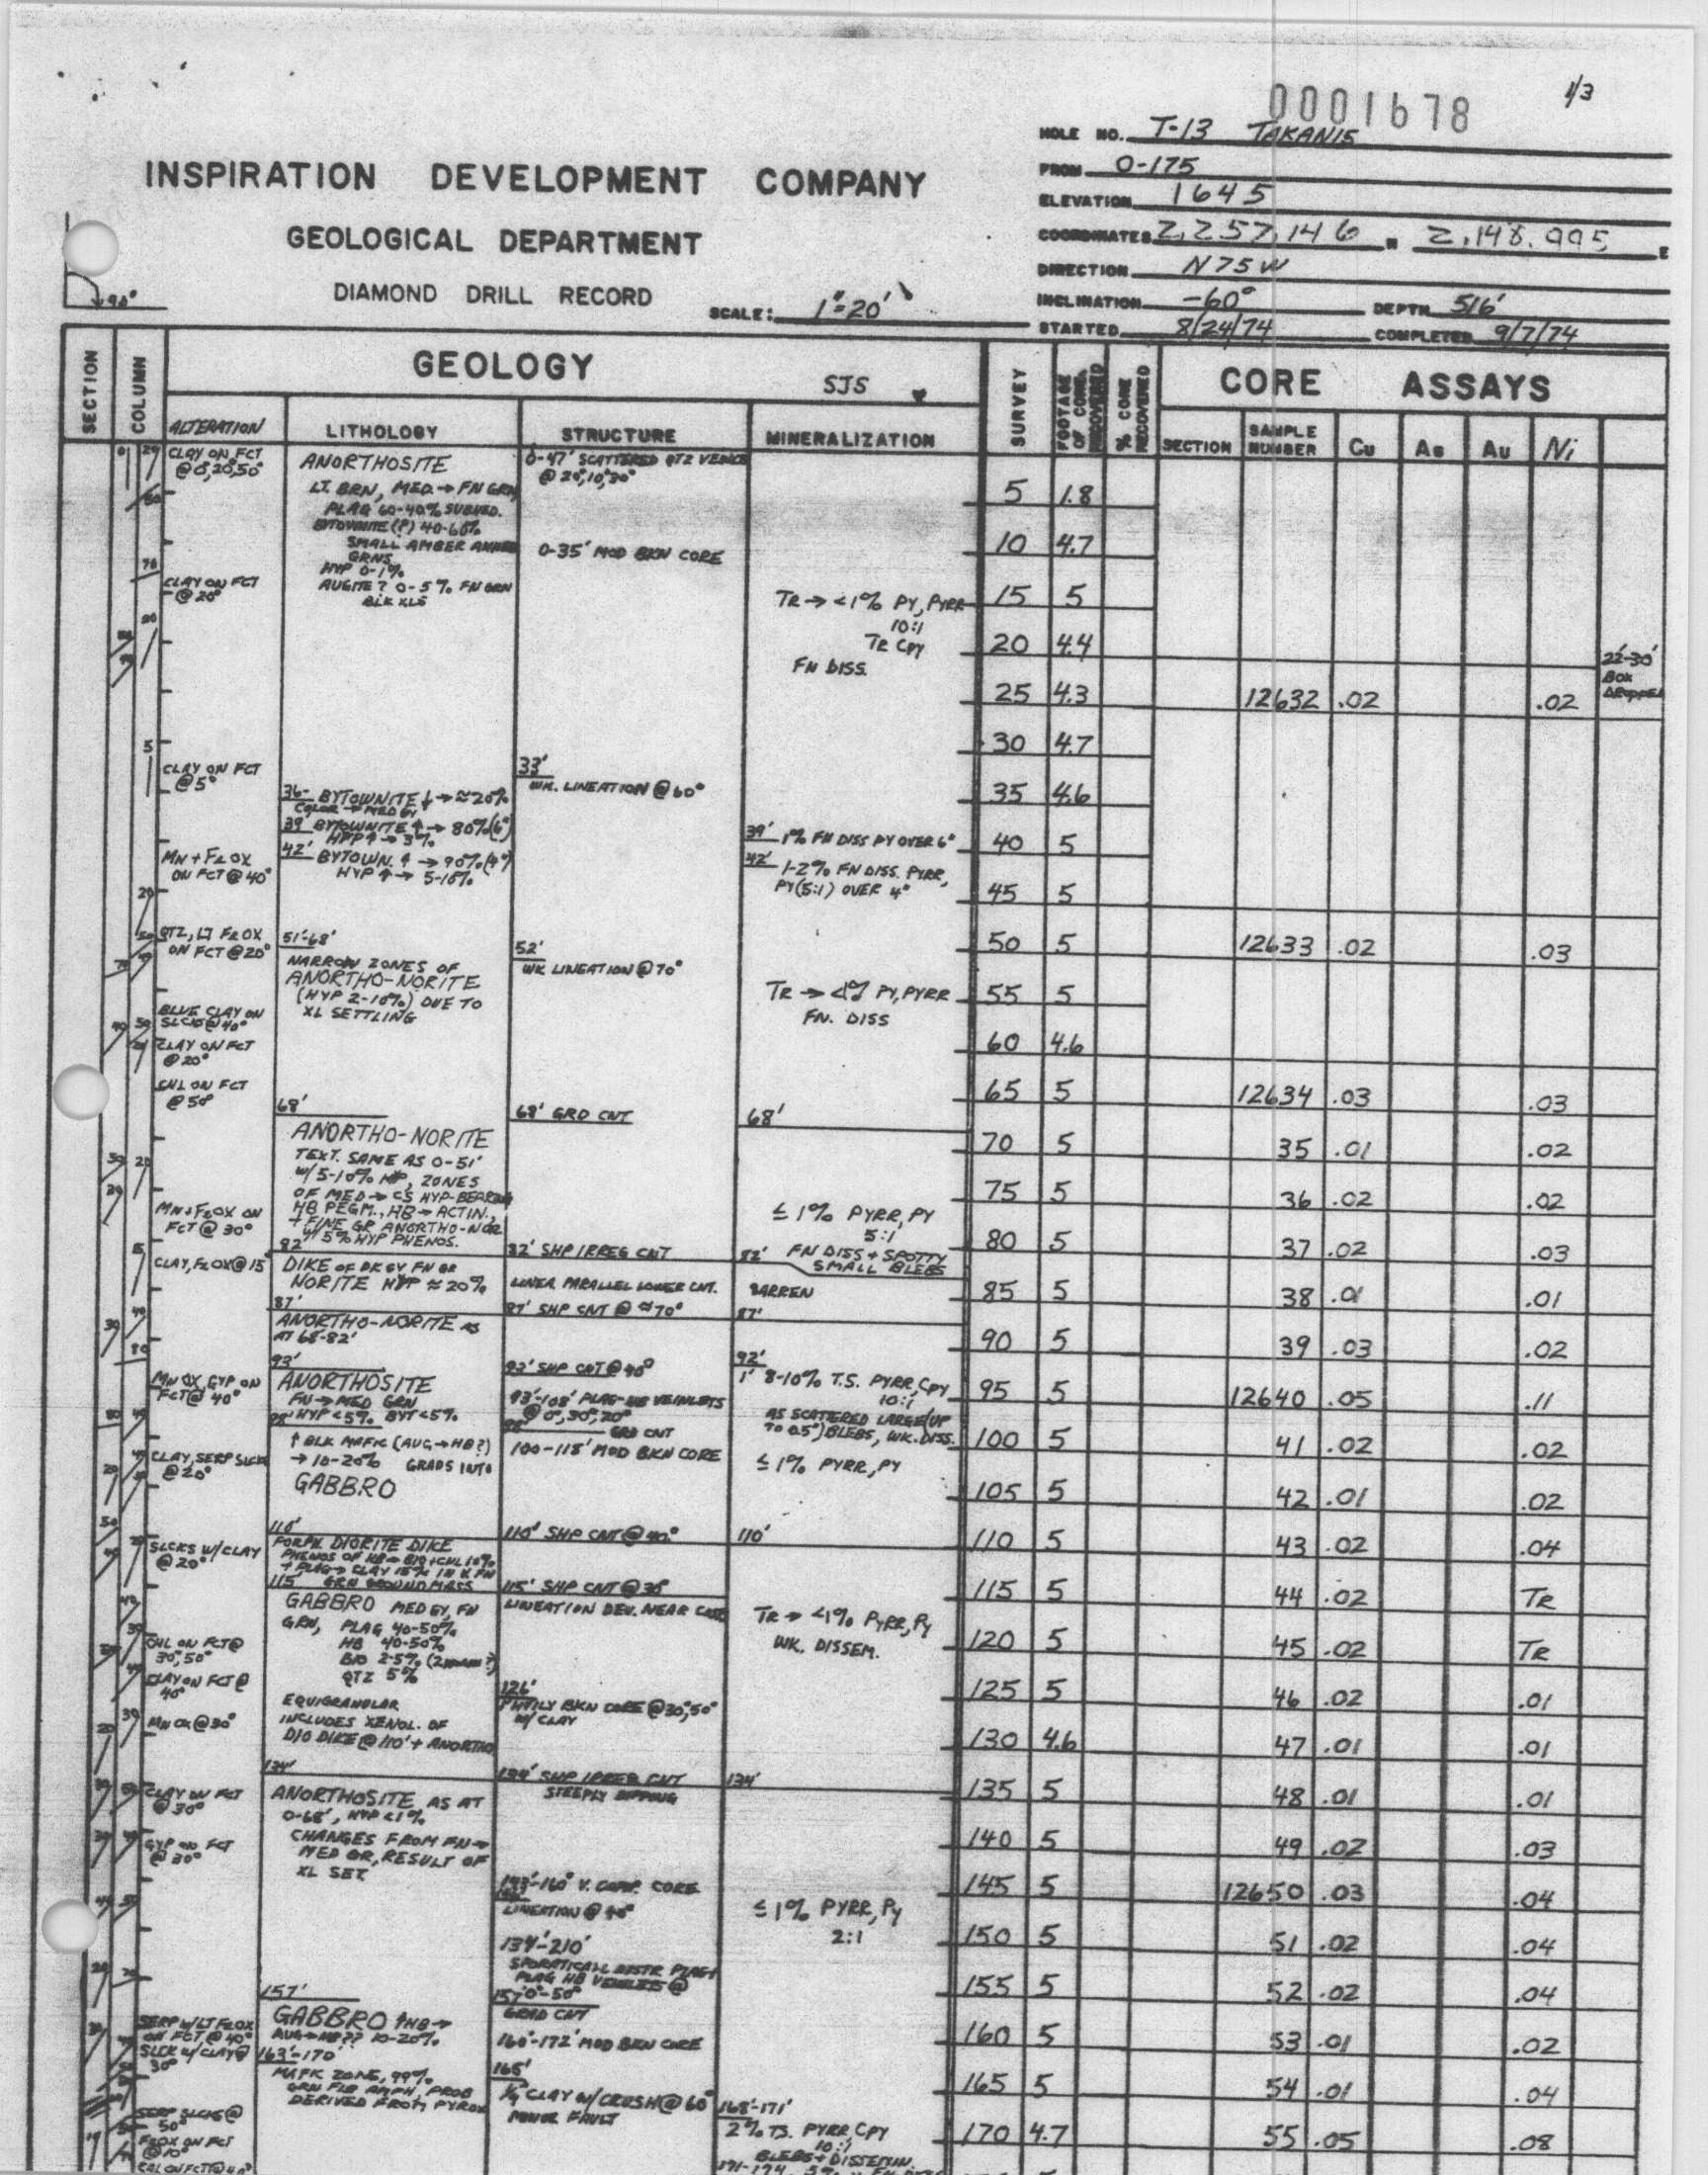 0001678
1/3
HOLE NO. T-13 TAKANIS
FROM 0-175
ELEVATION 1645
COORDINATES 2,257,146 N 2,148,995 E
DIRECTION N75W
INCLINATION -60° DEPTH 516'
STARTED 8/24/74 COMPLETED 9/7/74
INSPIRATION DEVELOPMENT COMPANY
GEOLOGICAL DEPARTMENT
DIAMOND DRILL RECORD SCALE: 1"=20'
90°
SECTION
COLUMN
GEOLOGY SJS
SURVEY
FOOTAGE OF CORE RECOVERED
% CORE RECOVERED
CORE ASSAYS
ALTERATION LITHOLOGY STRUCTURE MINERALIZATION
SECTION SAMPLE NUMBER Cu Ag Au Ni
CLAY ON FCT
CLAY ON FCT
@ 20°
CLAY ON FCT
@ 5°
MN + FEOX
ON FCT @ 40°
QTZ, LT FEOX
ON FCT @ 20°
BLUE CLAY ON
SLCKS @ 40°
CLAY ON FCT
@ 20°
CHL ON FCT
@ 50°
MN + FEOX ON
FCT @ 30°
CLAY, FEOX @ 15
MN OX, GYP ON
FCT @ 40°
CLAY, SERP SLCKS
@ 20°
SLCKS W/CLAY
@ 20°
CHL ON FCT @
30°, 50°
CLAY ON FCT @
40°
MN OX @ 30°
CLAY ON FCT
@ 30°
GYP ON FCT
@ 30°
SERP W/LT FEOX
ON FCT @ 40°
SLCK W/ CLAY @
30°
SERP SLCKS @
50°
FEOX ON FCT
@ 10°
ANORTHOSITE
LT. BRN, MED → FN GRN
PLAG 60-40% SUBHED.
BYTOWNITE (?) 40-60%
SMALL AMBER
GRNS
HYP 0-1%
AUGITE? 0-5% FN GRN
BLK XLS
36- BYTOWNITE ↓ → ≈20%
COLOR → MED GY
39' BYTOWNITE ↑ → 80% (6")
HYP ↑ → 3%
42' BYTOWN. ↑ → 90% (4")
HYP ↑ → 5-10%
51'-68'
NARROW ZONES OF
ANORTHO-NORITE
(HYP 2-10%) DUE TO
XL SETTLING
68'
ANORTHO-NORITE
TEXT. SAME AS 0-51'
W/5-10% HYP, ZONES
OF MED → CS HYP-BEARING
HB PEGM., HB → ACTIN.,
+ FINE GR ANORTHO-NOR
W/ 5% HYP PHENOS.
82'
DIKE OF DK GY FN GR
NORITE HYP ≈ 20%
87'
ANORTHO-NORITE AS
AT 68-82'
93'
ANORTHOSITE
FN → MED GRN
98' HYP <5% BYT <5%
↑ BLK MAFIC (AUG → HB?)
→ 10-20% GRADS INTO
GABBRO
110'
PORPH DIORITE DIKE
PHENOS OF HB → BIO + CHL 10%
+ PLAG → CLAY 15% IN V FN
115' GRN GROUNDMASS
GABBRO MED GY, FN
GRN, PLAG 40-50%
HB 40-50%
BIO 2-5%
QTZ 5%
EQUIGRANULAR
INCLUDES XENOL. OF
DIO DIKE @ 110' + ANORTHO
134'
ANORTHOSITE AS AT
0-68', HYP <1%
CHANGES FROM FN →
MED GR, RESULT OF
XL SET.
157'
GABBRO ↑ HB →
AUG → HB?? 10-20%
163'-170'
MAFIC ZONE, 99%
GRN FIB AMPH, PROB
DERIVED FROM PYROX
0-47' SCATTERED QTZ VEINS
@ 20°, 10°, 30°
0-35' MOD BKN CORE
33'
WK. LINEATION @ 60°
52'
WK LINEATION @ 70°
68' GRD CNT
82' SHP IRREG CNT
LINEA. PARALLEL LOWER CNT.
87' SHP CNT @ ≈70°
93' SHP CNT @ 40°
93'-108' PLAG-HB VEINLETS
@ 0°, 30°, 20°
98' GRD CNT
100-115' MOD BKN CORE
110' SHP CNT @ 40°
115' SHP CNT @ 30°
LINEATION DEV. NEAR
126'
BKN CORE @ 30°, 50°
W/ CLAY
134' SHP IRREG CNT
STEEPLY DIPPING
143'-160' V. COMP. CORE
LINEATION @ 40°
134'-210'
PLAG HB VEINLETS @
0°-50°
157'
GRAD CNT
160'-172' MOD BKN CORE
165'
CLAY W/CRUSH @ 60°
MINOR FAULT
TR → <1% PY, PYRR
10:1
TR CPY
FN DISS.
39' 1% FN DISS PY OVER 6"
42' 1-2% FN DISS. PYRR,
PY (5:1) OVER 4"
TR → <1% PY, PYRR
FN. DISS
68'
≤ 1% PYRR, PY
5:1
FN DISS + SPOTTY
SMALL BLEBS
82'
BARREN
87'
92'
1' 8-10% T.S. PYRR, CPY
10:1
AS SCATTERED LARGE (UP
TO 0.5") BLEBS, WK. DISS.
≤ 1% PYRR, PY
110'
TR → <1% PYRR, PY
WK. DISSEM.
134'
≤ 1% PYRR, PY
2:1
168'-171'
2% TS. PYRR, CPY
10:1
BLEBS + DISSEMIN.
5 1.8
10 4.7
15 5
20 4.4
22'-30'
BOX
DROPPED
25 4.3 12632 .02 .02
30 4.7
35 4.6
40 5
45 5
50 5 12633 .02 .03
55 5
60 4.6
65 5 12634 .03 .03
70 5 35 .01 .02
75 5 36 .02 .02
80 5 37 .02 .03
85 5 38 .01 .01
90 5 39 .03 .02
95 5 12640 .05 .11
100 5 41 .02 .02
105 5 42 .01 .02
110 5 43 .02 .04
115 5 44 .02 TR
120 5 45 .02 TR
125 5 46 .02 .01
130 4.6 47 .01 .01
135 5 48 .01 .01
140 5 49 .02 .03
145 5 12650 .03 .04
150 5 51 .02 .04
155 5 52 .02 .04
160 5 53 .01 .02
165 5 54 .01 .04
170 4.7 55 .05 .08